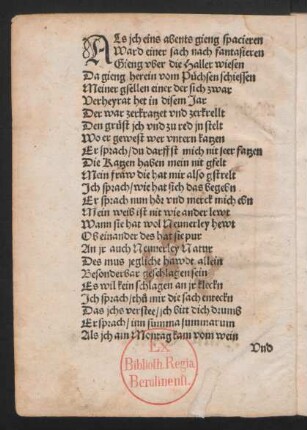 Als jch eins abents gieng spacieren
Ward einer sach nach fantasieren
Gieng vber die Haller wiesen
Da gieng herein vom Püchsen schiessen
Meiner gsellen einer der sich zwar
Verheyrat het in disem Jar
Der war zerkratzt vnd zerkrellt
Den grüst jch vnd zu red jn stelt
Wo er gewest wer vntern katzen
Er sprach/ du darffst mich nit seer fatzen
Die Katzen haben mein nit gfelt
Mein fraw die hat mir also gstrelt
Ich sprach/ wie hat sich das begebn
Er sprach nun hör vnd merck mich ebn
Mein weib ist nit wie ander lewt
Wann sie hat wol Neunerley hewt
Ob einander des hat sie pur
An jr auch Neunerley Natur
Des mus jegliche hawdt allein
Besonderbar geschlagen sein
Es wil kein schlagen an jr kleckn
Ich sprach/ thů mir die sach enteckn
Das jchs verstee/ jch bit dich drumb
Er sprach/ inn summa summarum
Als jch am Montag kam vom wein
Vnd
EX
Biblioth. Regia
Berolinensi.